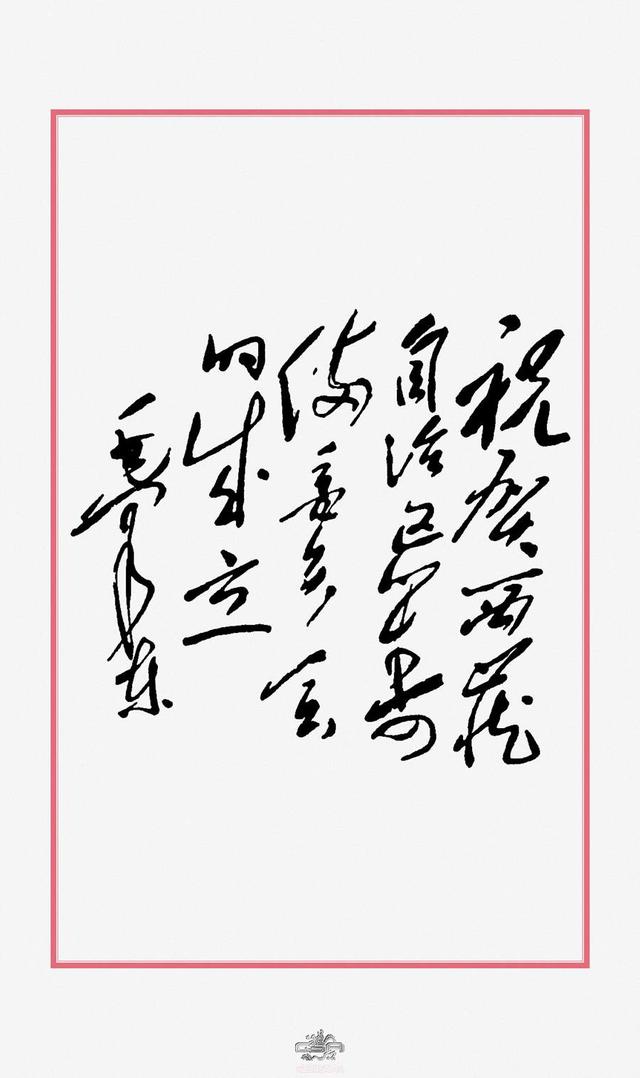 祝贺西藏
自治区筹
备委员会
的成立
毛泽东